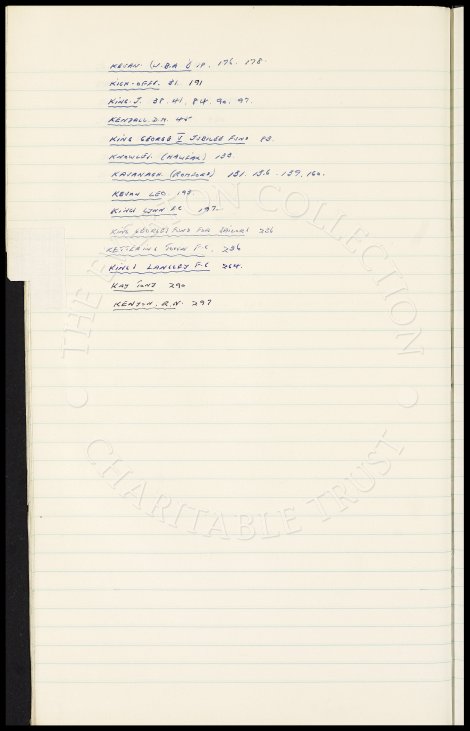 KEVAN. (W.B.A.) 19. 176. 178.
KICK-OFFS. 81. 191
KING. J. 38. 41. 84. 90. 97.
KENDALL. D.M. 45
KING GEORGE V JUBILEE FUND 83.
KNOWLES. (HALIFAX) 133.
KAVANAGH. (ROMFORD) 131. 136. 159. 160.
KEVAN LEO. 193.
KINGS LYNN F.C. 197.
KING GEORGES FUND FOR SAILORS 226
KETTERING TOWN F.C. 236
KINGS LANGLEY F.C. 264.
KAY TONY 290
KENYON. R.N. 297
THE COLLECTION
CHARITABLE TRUST